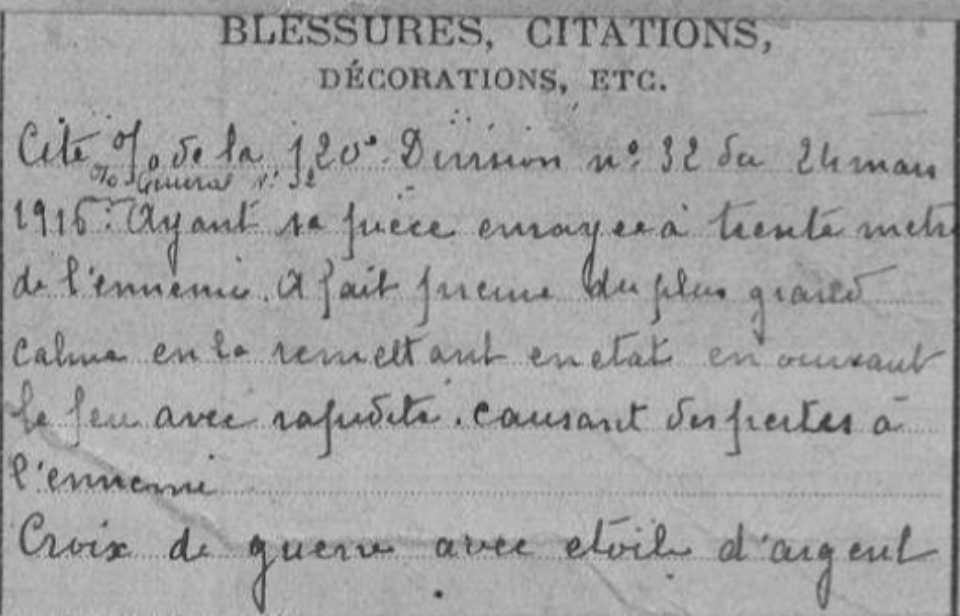 BLESSURES, CITATIONS,
DÉCORATIONS, ETC.
Cité o/o de la 120e Division n° 32 du 24 mars
o/o General n° 32
1916. Ayant sa pièce enrayée à trente metr
de l'ennemi. A fait preuve du plus grand
calme en la remettant en etat en ouvrant
le feu avec rapidité. causant des pertes à
l'ennemi
Croix de guerre avec etoile d'argent